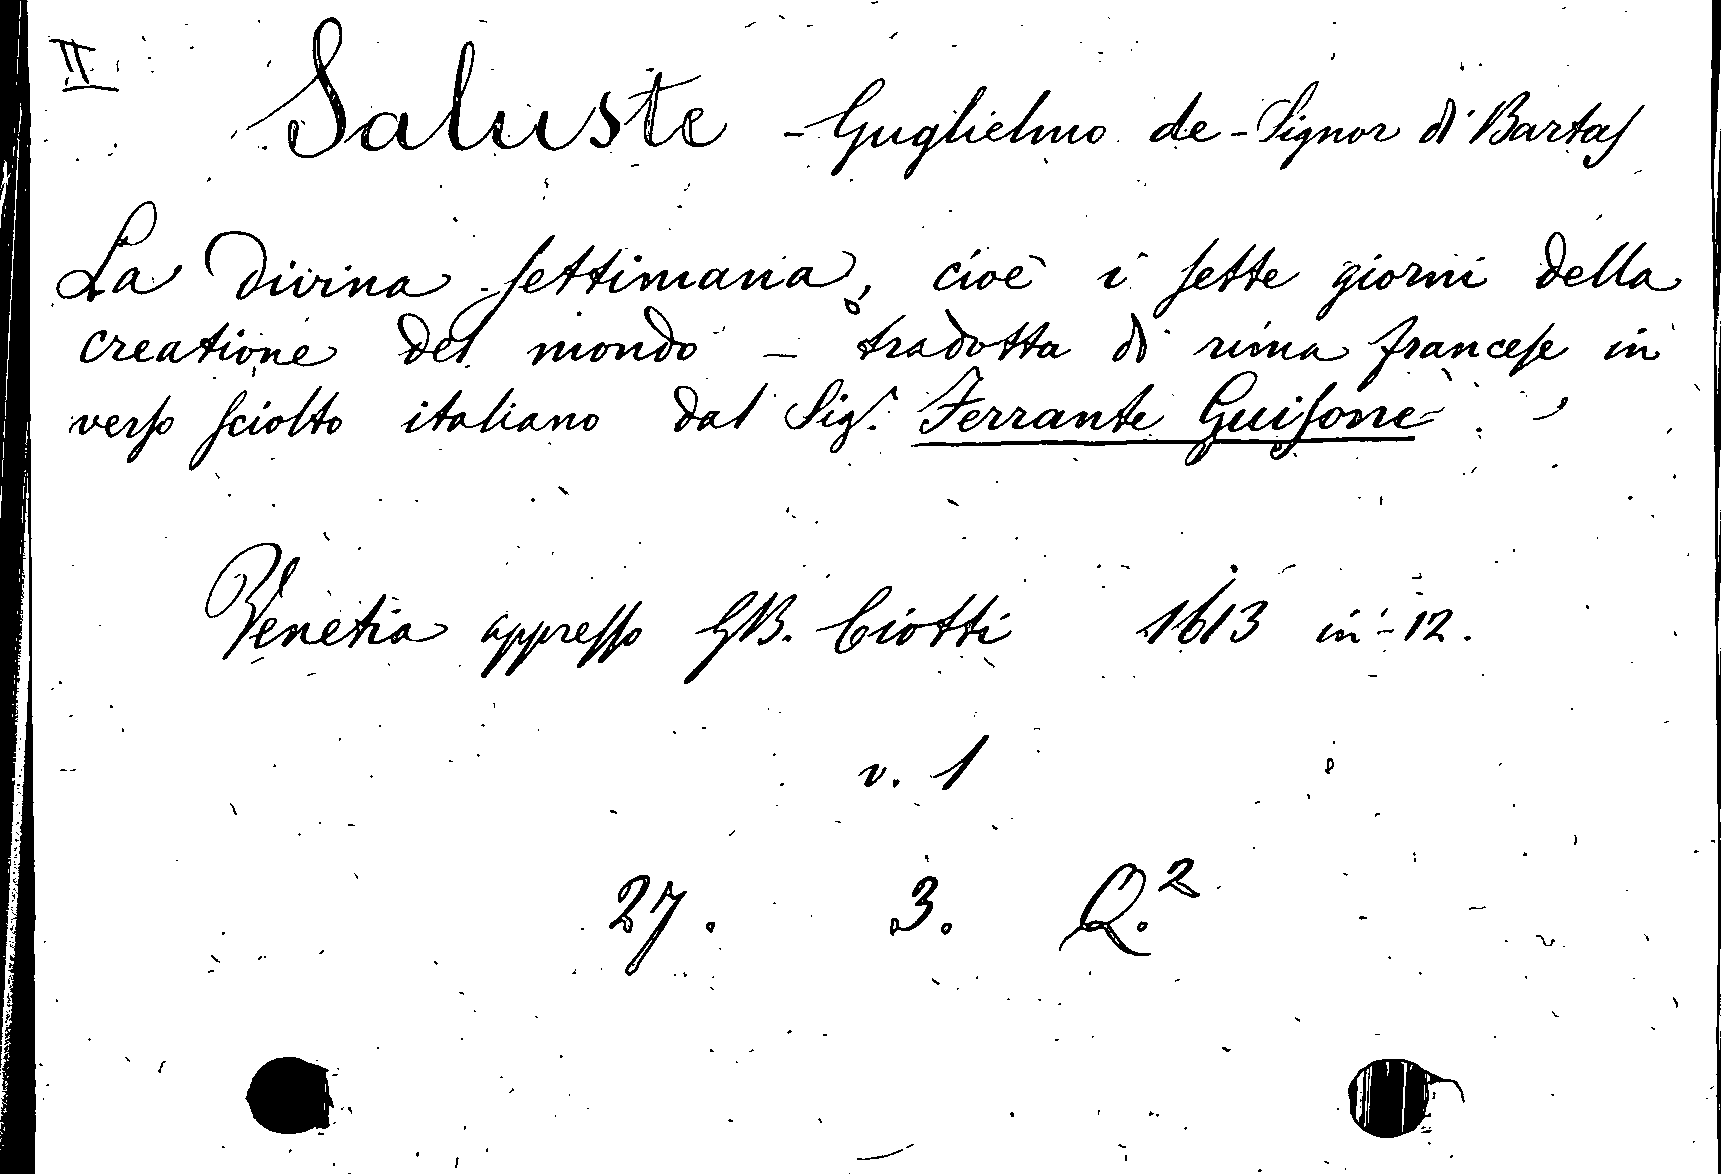 II
Saluste - Guglielmo de - Signor di Bartas
La Divina settimana, cioè i sette giorni della
creatione del mondo - tradotta di rima francese in
verso sciolto italiano dal Sigr. Ferrante Guisone
Venetia appresso GB. Ciotti 1613 in-12.
v. 1
27. 3. Q.2